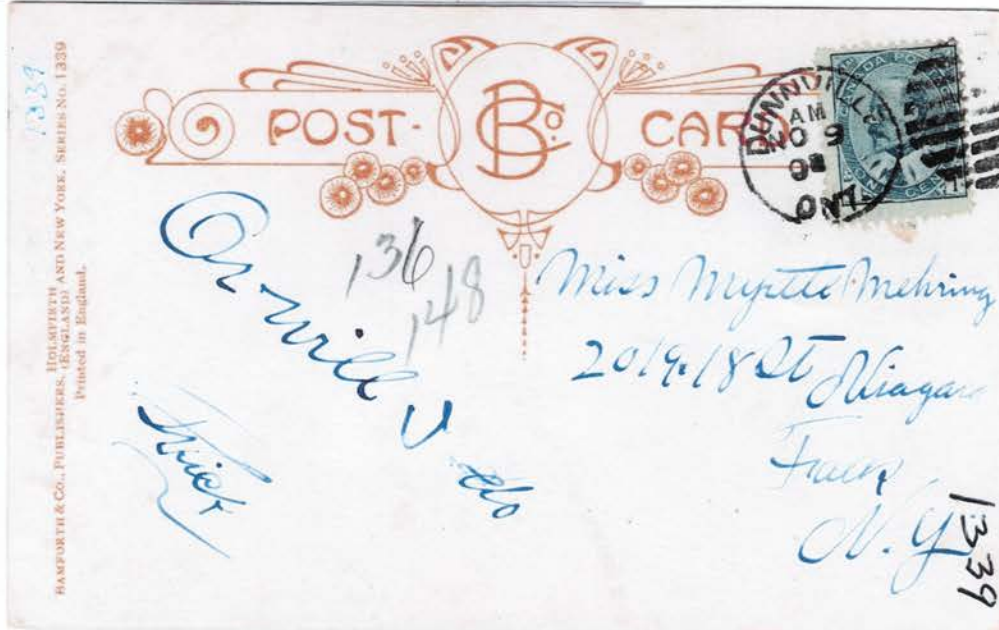 1339
BAMFORTH & CO., PUBLISHERS, HOLMFIRTH (ENGLAND) AND NEW YORK. SERIES No. 1339
Printed in England.
POST-
B Co.
CARD
DUNNVILLE
AM
OC 9
08
ONT
CANADA POSTAGE
ONE CENT
136
148
Or will U
Miss Myrtte Mehring
2019.18 St Niagara
N.Y
1339